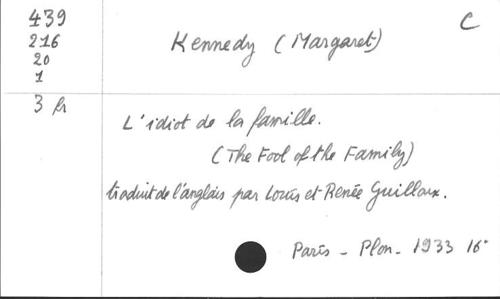 439
216
20
1
3 fr
C
Kennedy (Margaret)
L'idiot de la famille.
(The Fool of the Family)
traduit de l'anglais par Louis et Renée Guilloux.
Paris - Plon - 1933 16°